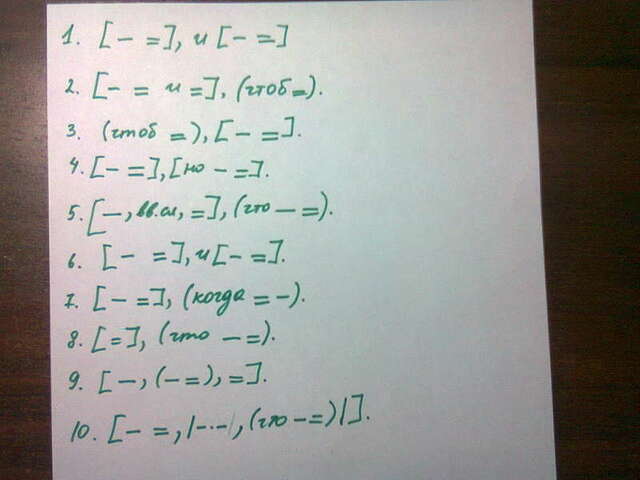 1. [– =], и [– =]
2. [– = и =], (чтоб =).
3. (чтоб =), [– =].
4. [– =], [но – =].
5. [–, вв.сл, =], (что – =).
6. [– =], и [– =].
7. [– =], (когда = –).
8. [=], (что – =).
9. [–, (– =), =].
10. [– =, |–·–|, (что – =)|].